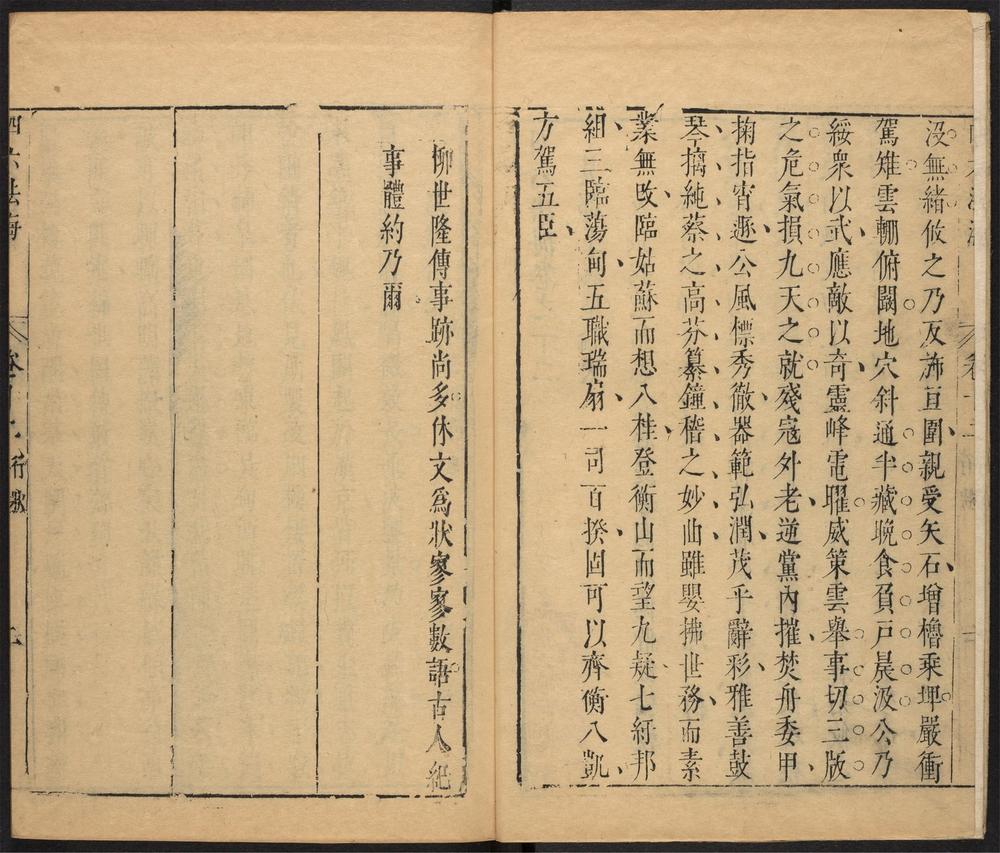 没無緒攸之乃反斾亘圍親受矢石增櫓乘堙嚴衝
駕雉雲輣俯闞地穴斜通半藏晚食負戶晨汲公乃
綏衆以武應敵以奇靈峰電曜威策雲舉事切三版
之危氣損九天之就殘寇外老逆黨內摧焚舟委甲
掬指宵遯公風標秀徹器範弘潤茂乎辭彩雅善鼓
琴摛純蔡之高芬纂鐘稽之妙曲雖嬰拂世務而素
業無改臨姑蘇而想八桂登衡山而望九疑七紆邦
組三臨蕩甸五職瑞扇一司百揆固可以齊衡八凱
方駕五臣
柳世隆傳事跡尚多休文爲狀寥寥數語古人紀
事體約乃爾
四六法海
行